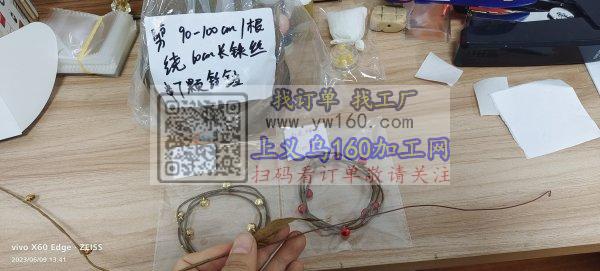 剪 90-100cm/根
绕 10cm长铁丝
钉7颗铃铛
找订单 找工厂
www.yw160.com
上义乌160加工网
扫码看订单敬请关注
vivo X60 Edge · ZEISS
2023/06/09 13:41